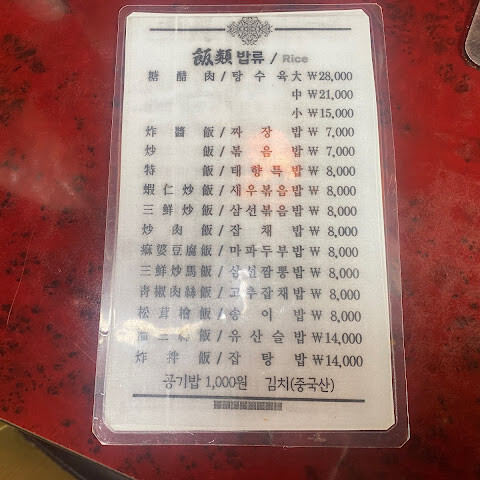 飯類 밥류 / Rice
糖醋肉/탕수육 大 ₩28,000
中 ₩21,000
小 ₩15,000
炸醬飯/짜장밥 ₩7,000
炒飯/볶음밥 ₩7,000
特飯/태향특밥 ₩8,000
蝦仁炒飯/새우볶음밥 ₩8,000
三鮮炒飯/삼선볶음밥 ₩8,000
炒肉飯/잡채밥 ₩8,000
麻婆豆腐飯/마파두부밥 ₩8,000
三鮮炒馬飯/삼선짬뽕밥 ₩8,000
靑椒肉絲飯/고추잡채밥 ₩8,000
松茸檜飯/송이밥 ₩8,000
飯/유산슬밥 ₩14,000
炸拌飯/잡탕밥 ₩14,000
공기밥 1,000원 김치(중국산)